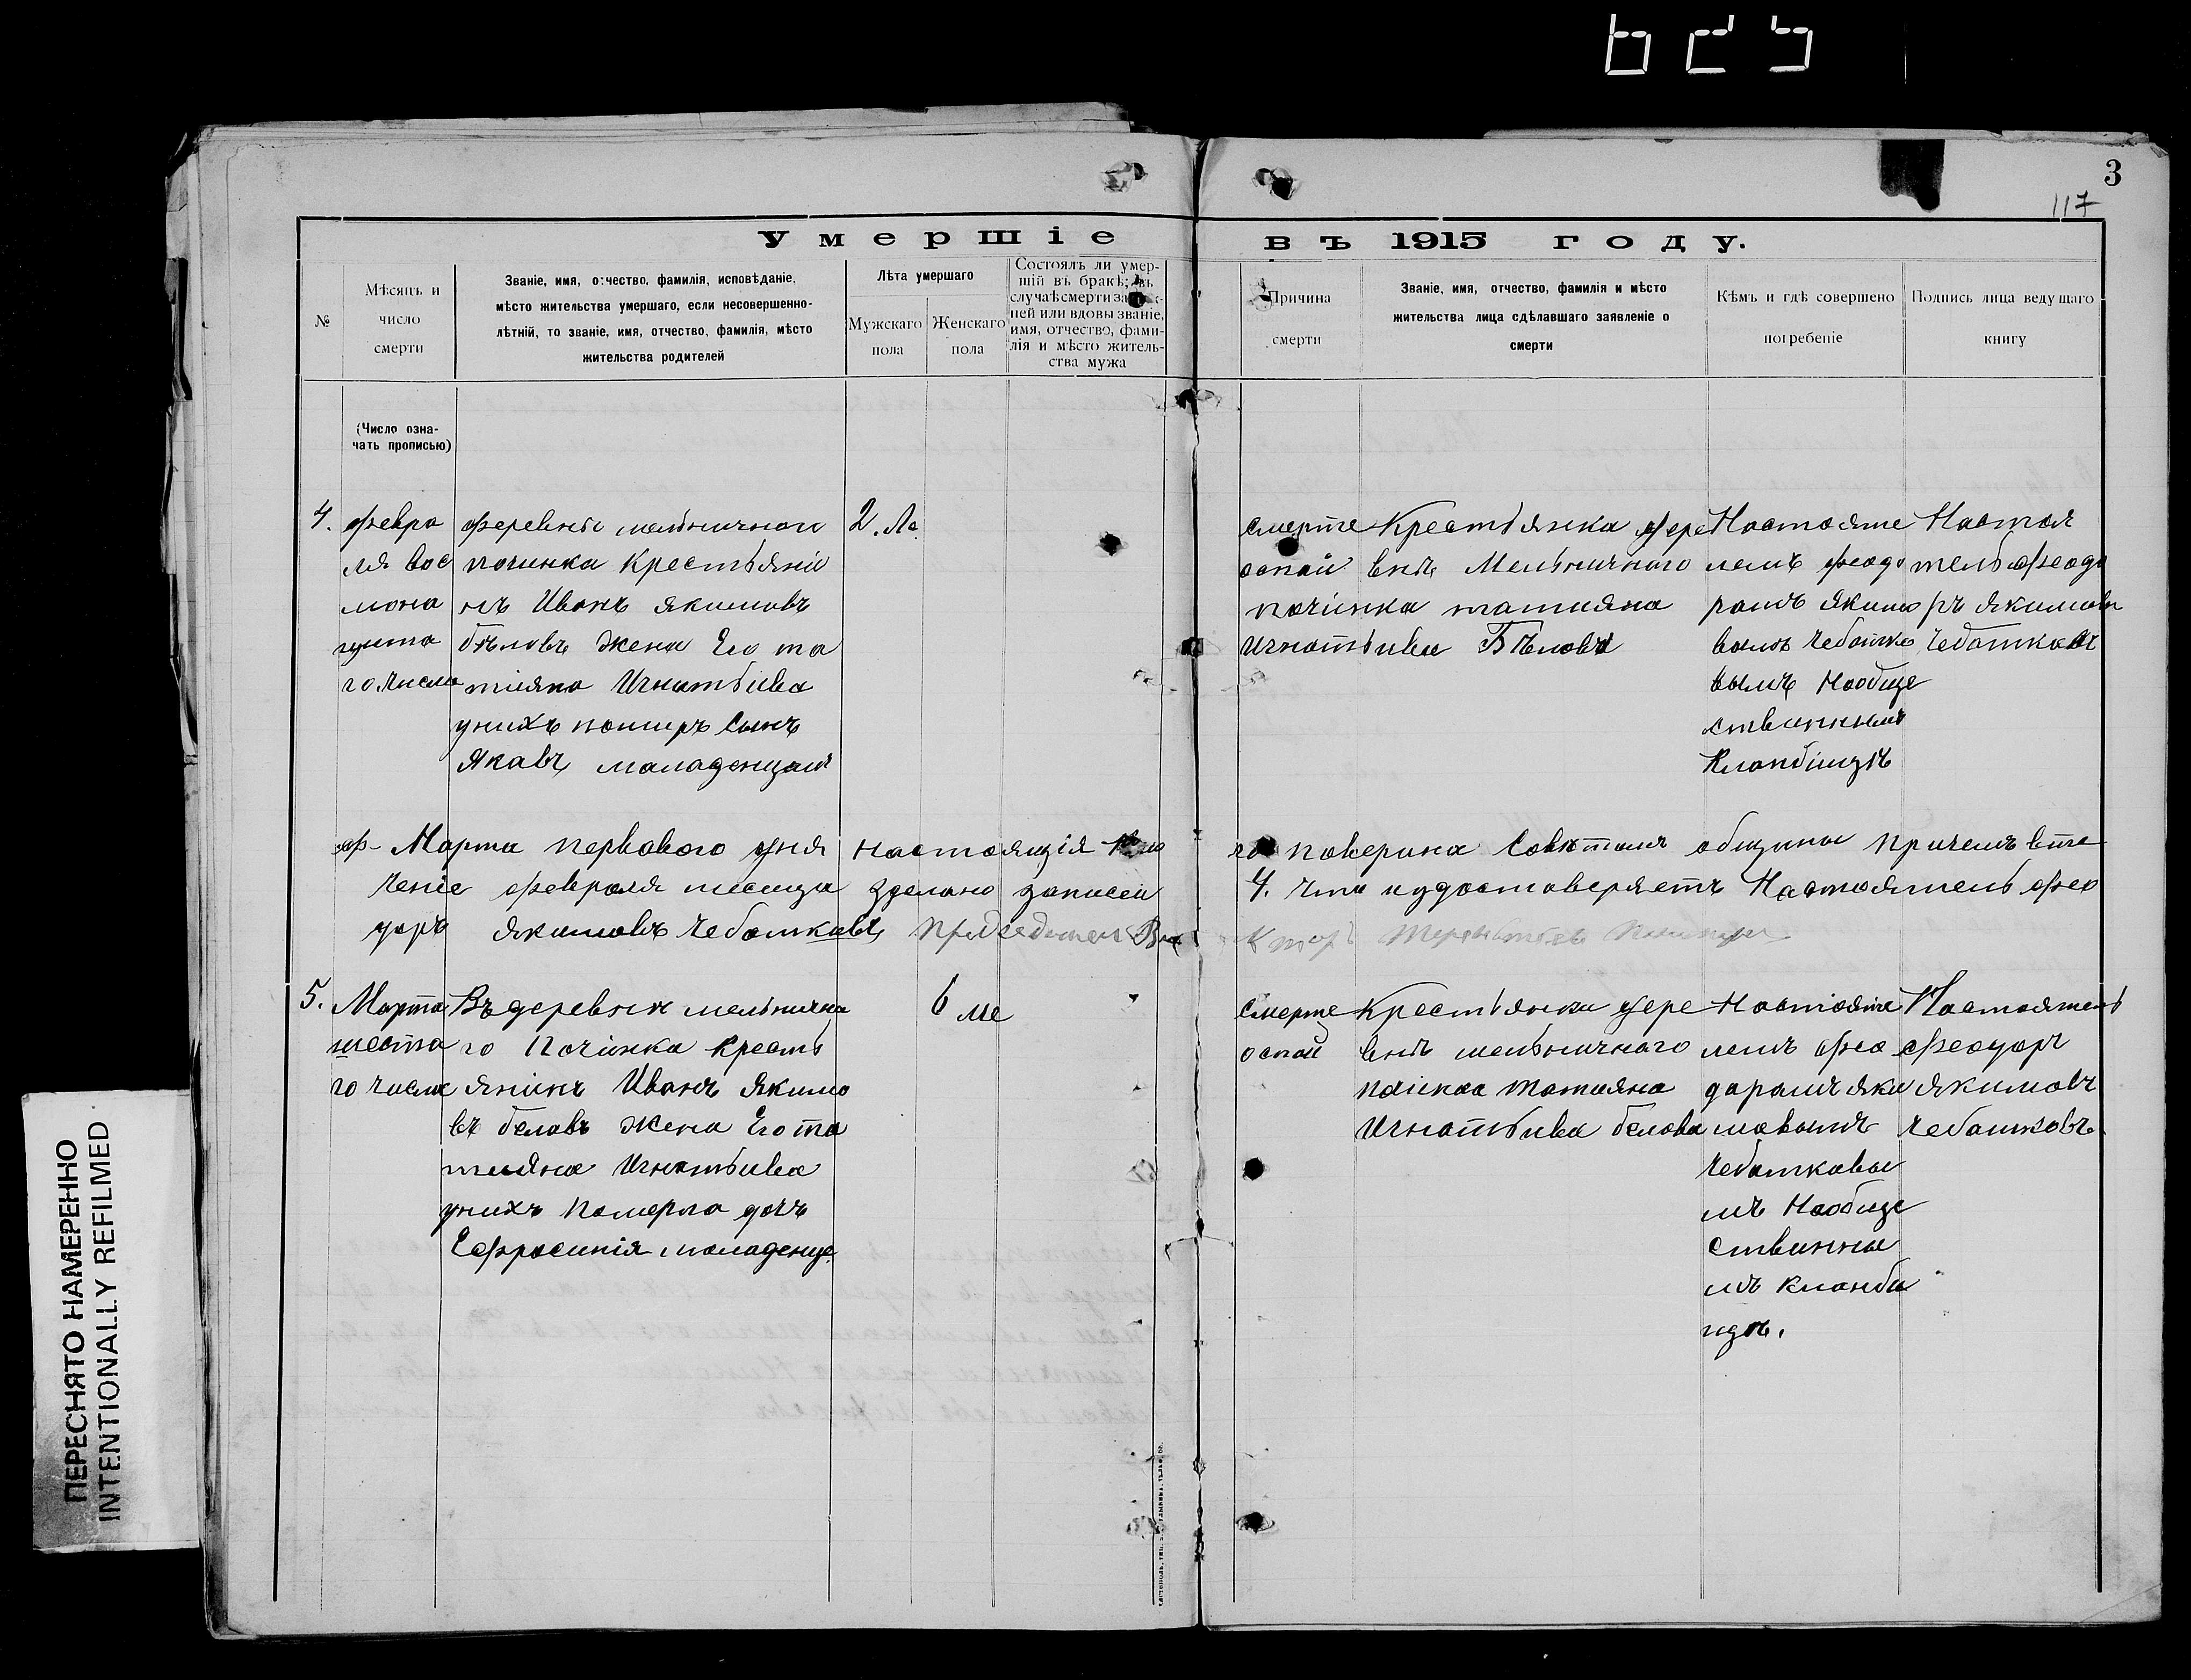 3
117
Умершіе въ 1915 году.
№
Мѣсяцъ и
число
смерти
Званіе, имя, отчество, фамилія, исповѣданіе,
мѣсто жительства умершаго, если несовершенно-
лѣтній, то званіе, имя, отчество, фамилія, мѣсто
жительства родителей
Лѣта умершаго
Мужскаго
пола
Женскаго
пола
Состоялъ ли умер-
шій въ бракѣ; въ
случаѣ смерти
ней или вдовы званіе,
имя, отчество, фами-
лія и мѣсто житель-
ства мужа
Причина
смерти
Званіе, имя, отчество, фамилія и мѣсто
жительства лица сдѣлавшаго заявленіе о
смерти
Кѣмъ и гдѣ совершено
погребеніе
Подпись лица ведущаго
книгу
(Число озна-
чать прописью)
4.
Февра
ля вос
мона
цата
го.числа
деревни мельничнаго
починка Крестьяни
нъ Иванъ Якимовъ
бѣловъ Жена Его та
тияна Игнатьива
унихъ помиръ Сынъ
Якавъ маладенцамъ
2. Ле.
смерте
оспай
Крестьянка дере
внѣ Мельничнаго
почінка татияна
Игнатьива Бѣлова
Настояте
лемъ феодо
рамъ Якимо
вымъ Чебатко
вымъ Наобще
ствинымъ
Клапбіщѣ
Настоя
тель феодо
ръ Якимовъ
Чебатковъ
Марта первового дня настоящія
поверина Совѣтомъ общины Причемъ вте
ченіе февраля месица зделано записей
4. Что иудостоверяетъ Настоятель фео
доръ Якимовъ Чебатковъ
5.
Марта
шеста
го числа
Въ деревни мельнична
го Почінка Кресть
янінъ Иванъ Якимо
въ белавъ Жена Его та
тияна Игнатьива
унихъ Померла дочъ
Ефросинія маладенце.
6 ме
Смерте
оспай
Крестьянка дере
внѣ мельничнаго
татияна
Игнатьива белова
Настояте
лемъ фео
дарамъ Яки
мовымъ
Чебатковы
мъ Наобще
ствинны
мъ кланби
щѣ.
Настоятель
феодоръ
Якимовъ
Чебатковъ
ПЕРЕСНЯТО НАМЕРЕННО
INTENTIONALLY REFILMED